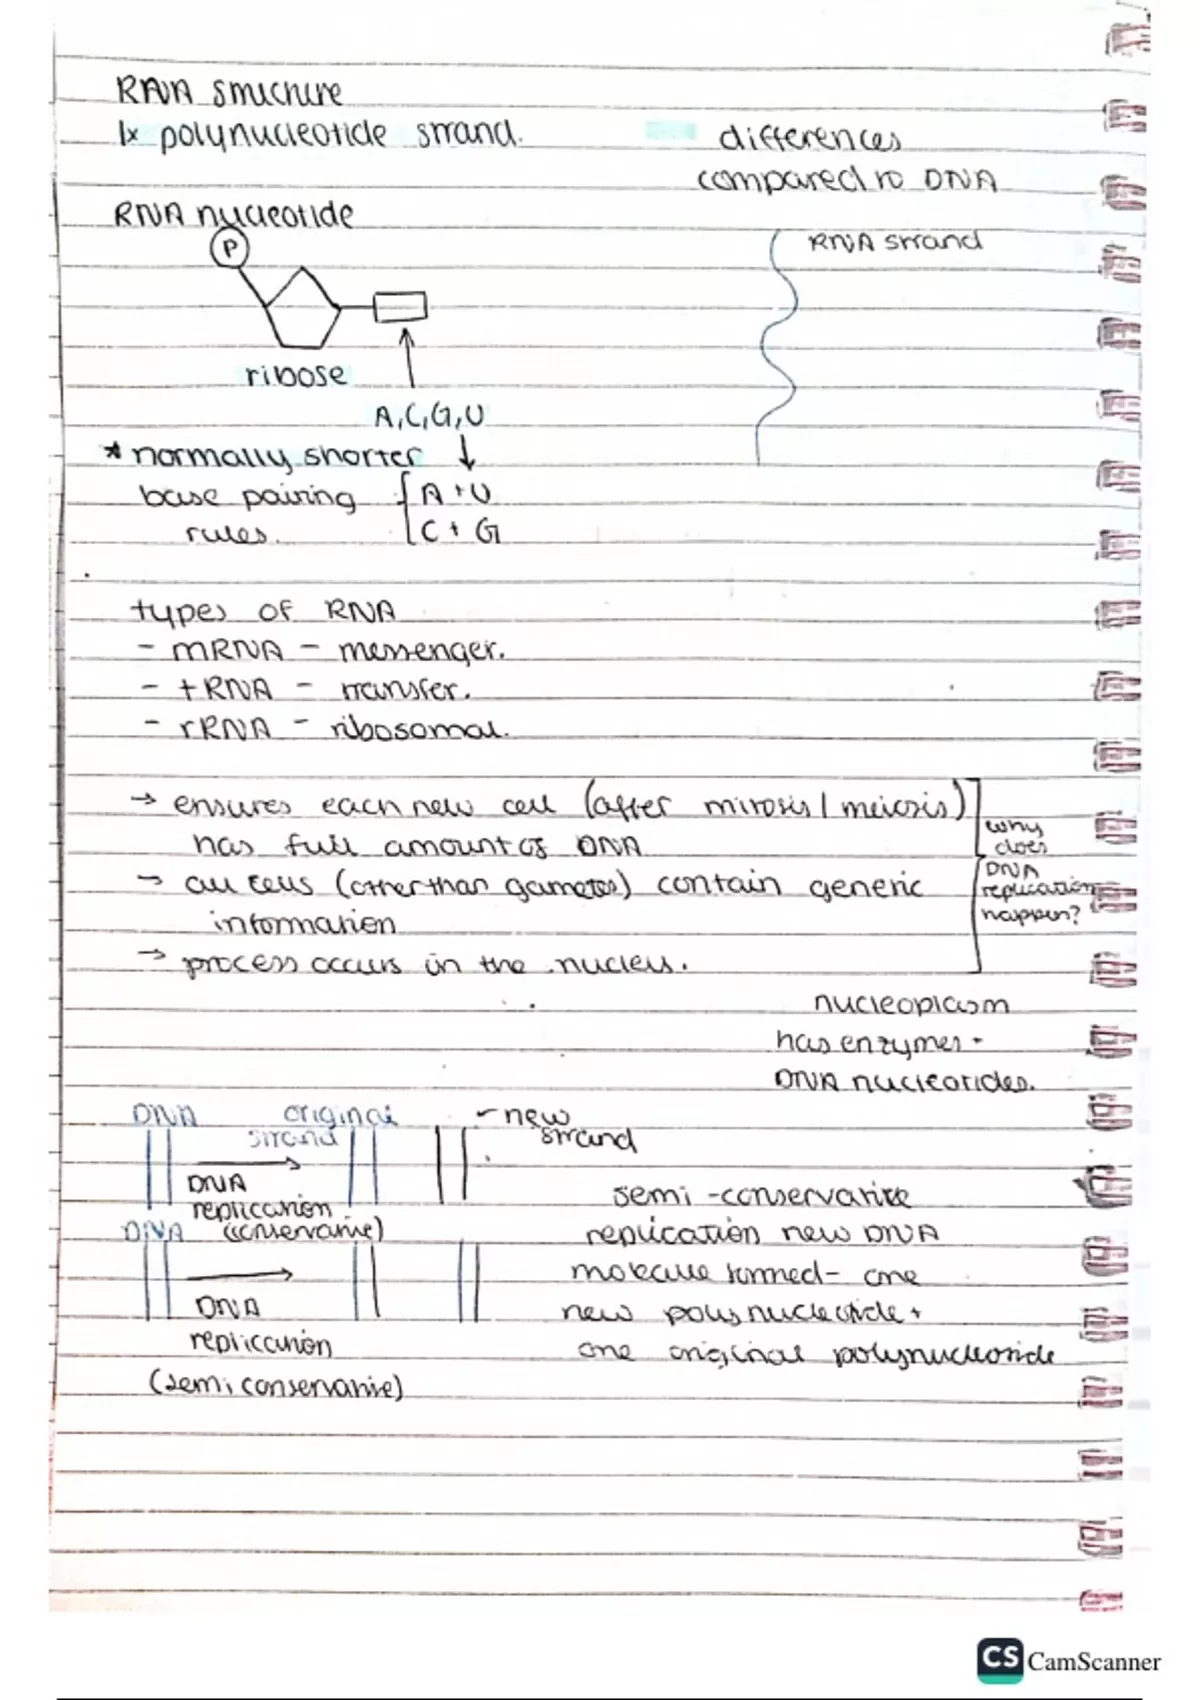 RNA structure
1x polynucleotide strand.
differences
compared to DNA
RNA nucleotide
P
RNA strand
ribose
A, C, G, U
* normally shorter
base pairing
rules.
A + U
C + G
types of RNA
- mRNA - messenger.
- tRNA - transfer.
- rRNA - ribosomal.
→ ensures each new cell (after mitosis / meiosis)
has full amount of DNA
→ all cells (other than gametes) contain genetic
information
→ process occurs in the nucleus.
why
does
DNA
replication
happen?
nucleoplasm
has enzymes -
DNA nucleotides.
DNA
original
strand
- new
strand
DNA
replication
(conservative)
DNA
DNA
replication
(semi conservative)
semi-conservative
replication new DNA
molecule formed - one
new polynucleotide +
one original polynucleotide
CS CamScanner